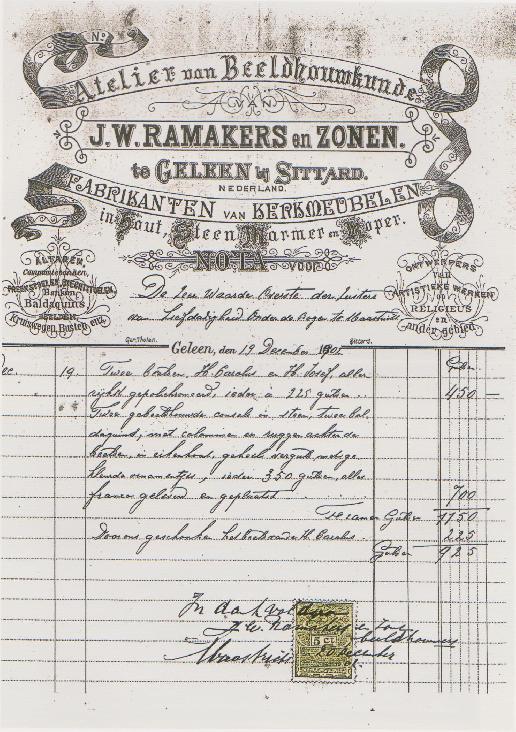 No
Atelier van Beeldhouwkunde
VAN
J.W. RAMAKERS en ZONEN.
te GELEEN bij SITTARD.
NEDERLAND.
FABRIKANTEN VAN KERKMEUBELEN
in Hout, Steen Marmer en Koper.
ALTAREN,
Communiebanken,
Baldaquins
BEELDEN,
Kruiswegen, Busten enz.
NOTA VOOR
ONTWERPERS
van
ARTISTIEKE WERKEN
op
RELIGIEUS
en
ander gebied.
De Zeer Waarde Overste der Zusters
van Liefdadigheid Onder de Bogen te Maastricht
Geleen, den 19 December 1901
19 Twee beelden, H. Carolus en H. Josef, allen
rijkst gepolychromeerd, ieder à 225 gulden . . 450 —
Twee gebeeldhouwde consols in steen, twee bal-
daquins, met colommen en ruggen achter de
beelden, in eikenhout, geheel verguld
ornamentjes, ieder 350 gulden, alles
franco geleverd en geplaatst . . . 700
Te zamen Gulden 1150
Door ons geschonken het beeld van den H. Carolus . 225
Gulden 925
In dank voldaan
J.W. Ramakers en Zonen
beeldhouwers
Maastricht 20 December
5 ct